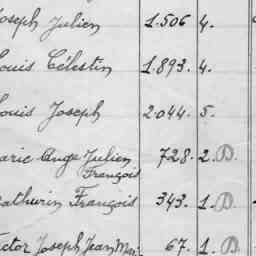 Joseph Julien 1.506 4.
Louis Célestin 1.893. 4.
Louis Joseph 2044. 5.
Marie Ange Julien François 728. 2. D.
Mathurin François 343. 1. D.
Victor Joseph Jean Mar 67. 1. D.